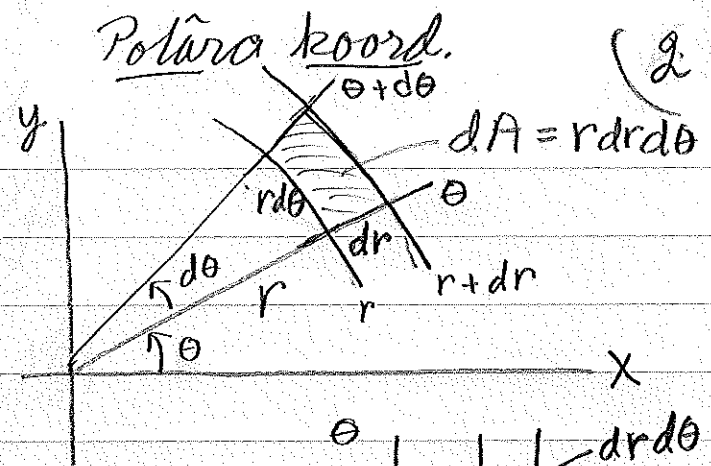 Polâra koord.
(2
θ+dθ
y
dA = rdrdθ
rdθ
θ
dr
dθ
r
r
r+dr
θ
x
θ
drdθ